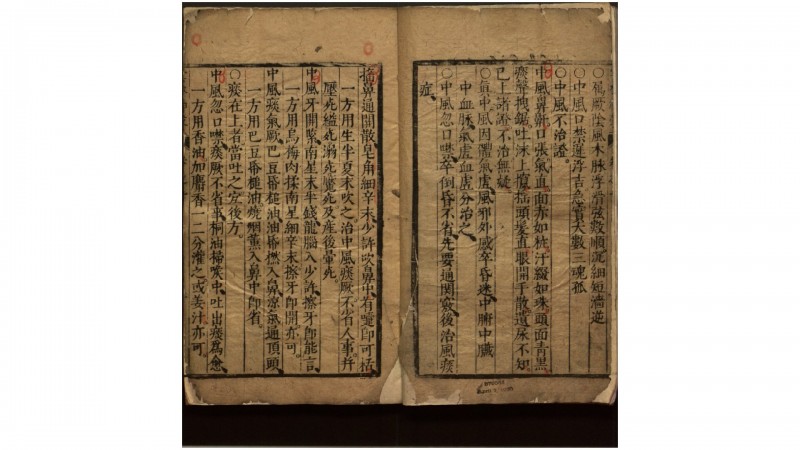 厥陰風木脉浮弦數順沉細短濇逆
○中風口噤遲浮吉急實大數三魂孤
○中風不治證
中風鼻鼾口張氣直面赤如粧汗綴如珠頭面青黑
痰響拽鋸吐沫上攛搖頭髮直眼開手散遺尿不知
已上諸證不治無疑
○眞中風因體氣虛風邪外感卒昏迷中腑中臟
中血脉氣虛血虛分治之
○中風忽口噤卒倒昏不省先要通關竅後治風痰
症
搐鼻通關散皂角細辛末少許吹鼻中有嚏即可活
一方用生半夏末吹之治中風痰厥不省人事并
壓死縊死溺死魘死及産後暈死。
中風牙關緊南星末半錢龍腦入少許擦牙即能言
一方用烏梅肉揉南星細辛末擦牙即開亦可。
中風痰氣厥巴豆昏槌油油昏撚入鼻氣通頂頭
一方用巴豆昏槌油燒烟熏入鼻中即省。
○痰在上者當吐之宜後方。
中風忽口噤痰厥不省事桐油掃喉中吐出痰爲愈
一方用香油加麝香一二分灌之或姜汁亦可